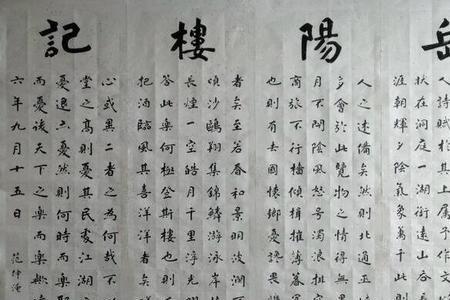 岳陽樓記
人詩賦於其上屬予作文
狀在洞庭一湖銜遠
涯朝暉夕陰氣象萬千此則
人之述備矣然則北通巫
多會於此覽物之情得無
月不開陰風怒號濁浪排
商旅不行檣傾楫摧薄暮
也則有去國懷鄉憂讒畏
者矣至若春和景明波瀾不
頃沙鷗翔集錦鱗游泳岸
長煙一空皓月千里浮光
答此樂何極登斯樓也則
把酒臨風其喜洋洋者矣
心或異二者之為何哉不
堂之高則憂其民處江湖之
憂退亦憂然則何時而樂耶
而憂後天下之樂而樂歟
六年九月十五日 范仲淹